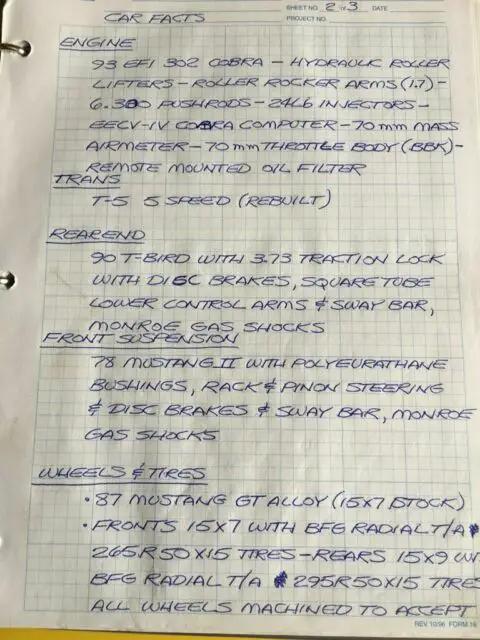 SHEET NO. 2 OF 3 DATE
CAR FACTS
PROJECT NO.
ENGINE
93 EFI 302 COBRA - HYDRAULIC ROLLER
LIFTERS - ROLLER ROCKER ARMS (1.7) -
6.300 PUSHRODS - 24LB INJECTORS -
EECV-IV COBRA COMPUTER - 70mm MASS
AIRMETER - 70mm THROTTLE BODY (BBK) -
REMOTE MOUNTED OIL FILTER
TRANS
T-5 5 SPEED (REBUILT)
REAREND
90 T-BIRD WITH 3.73 TRACTION LOCK
WITH DISC BRAKES, SQUARE TUBE
LOWER CONTROL ARMS & SWAY BAR,
MONROE GAS SHOCKS
FRONT SUSPENSION
78 MUSTANG II WITH POLYEURATHANE
BUSHINGS, RACK & PINON STEERING
& DISC BRAKES & SWAY BAR, MONROE
GAS SHOCKS
WHEELS & TIRES
• 87 MUSTANG GT ALLOY (15X7 STOCK)
• FRONTS 15X7 WITH BFG RADIAL T/A
265R50X15 TIRES - REARS 15X9 WI
BFG RADIAL T/A 295R50X15 TIRES
ALL WHEELS MACHINED TO ACCEPT
REV 10/96 FORM 16